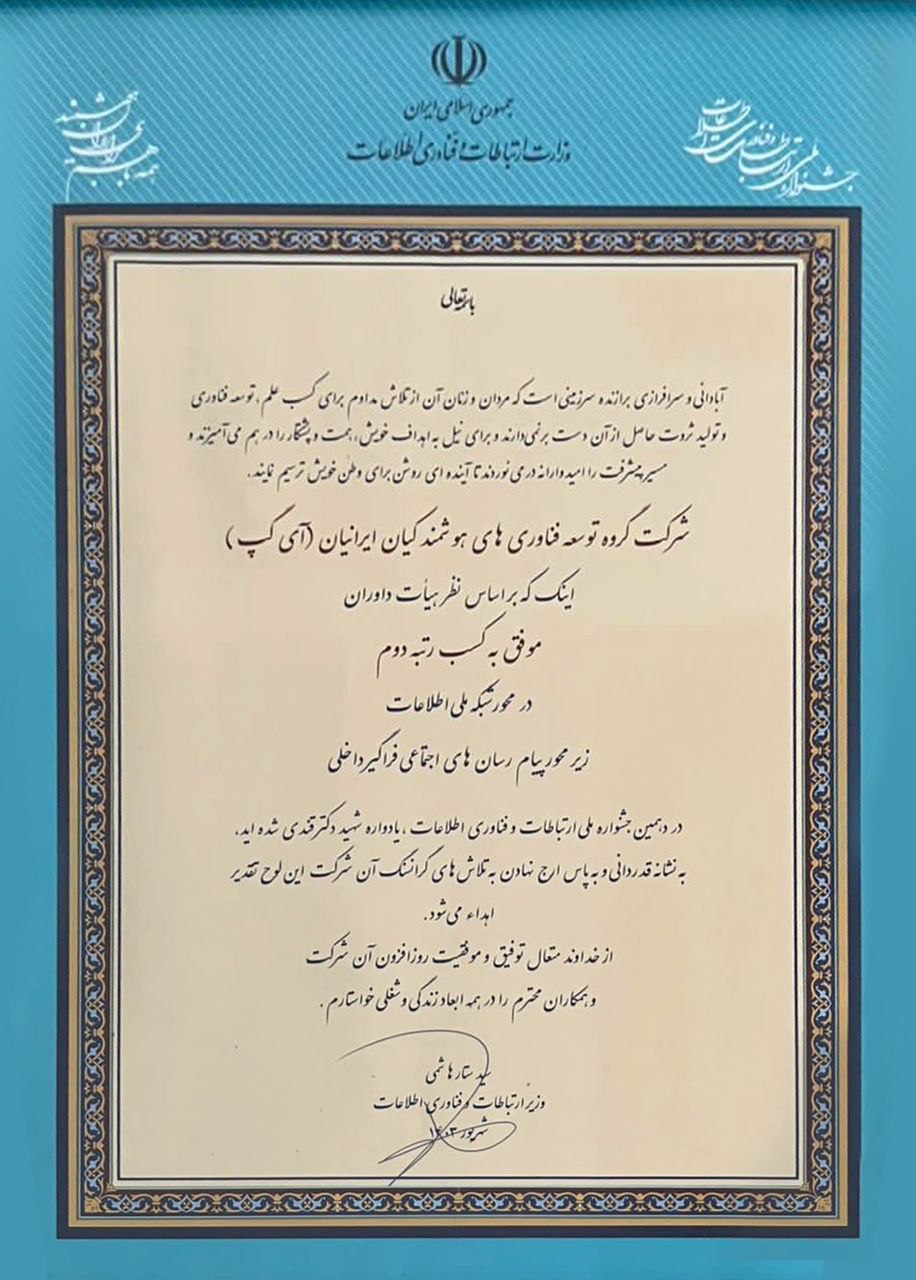 جمهوری اسلامی ایران
وزارت ارتباطات و فناوری اطلاعات
جشنواره ملی ارتباطات و فناوری اطلاعات
همه با هم برای ایران هوشمند
باسمه‌تعالی
آبادانی و سرافرازی برازنده سرزمینی است که مردان و زنان آن از تلاش مداوم برای کسب علم، توسعه فناوری
و تولید ثروت حاصل از آن دست برنمی‌دارند و برای نیل به اهداف خویش، همت و پشتکار را در هم می‌آمیزند و
مسیر پیشرفت را امیدوارانه درمی نوردند تا آینده ای روشن برای وطن خویش ترسیم نمایند.
شرکت گروه توسعه فناوری های هوشمند کیان ایرانیان (آی گپ)
اینک که بر اساس نظر هیأت داوران
موفق به کسب رتبه دوم
در محور شبکه ملی اطلاعات
زیر محور پیام رسان های اجتماعی فراگیر داخلی
در دهمین جشنواره ملی ارتباطات و فناوری اطلاعات، یادواره شهید دکتر قندی شده اید،
به نشانه قدردانی و به پاس ارج نهادن به تلاش های گرانسنگ آن شرکت این لوح تقدیر
اهداء می‌شود.
از خداوند متعال توفیق و موفقیت روزافزون آن شرکت
و همکاران محترم را در همه ابعاد زندگی و شغلی خواستارم.
سید ستار هاشمی
وزیر ارتباطات و فناوری اطلاعات
شهریور ۱۴۰۳